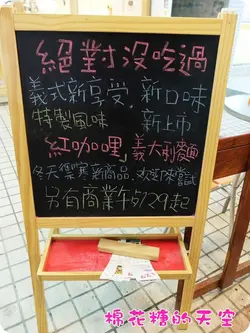 絕對沒吃過
義式新享受、新口味
特製風味 新上市
紅咖哩 義大利麵
冬天得寒新商品,歡迎來嘗試
另有商業午$129起
棉花糖的天空